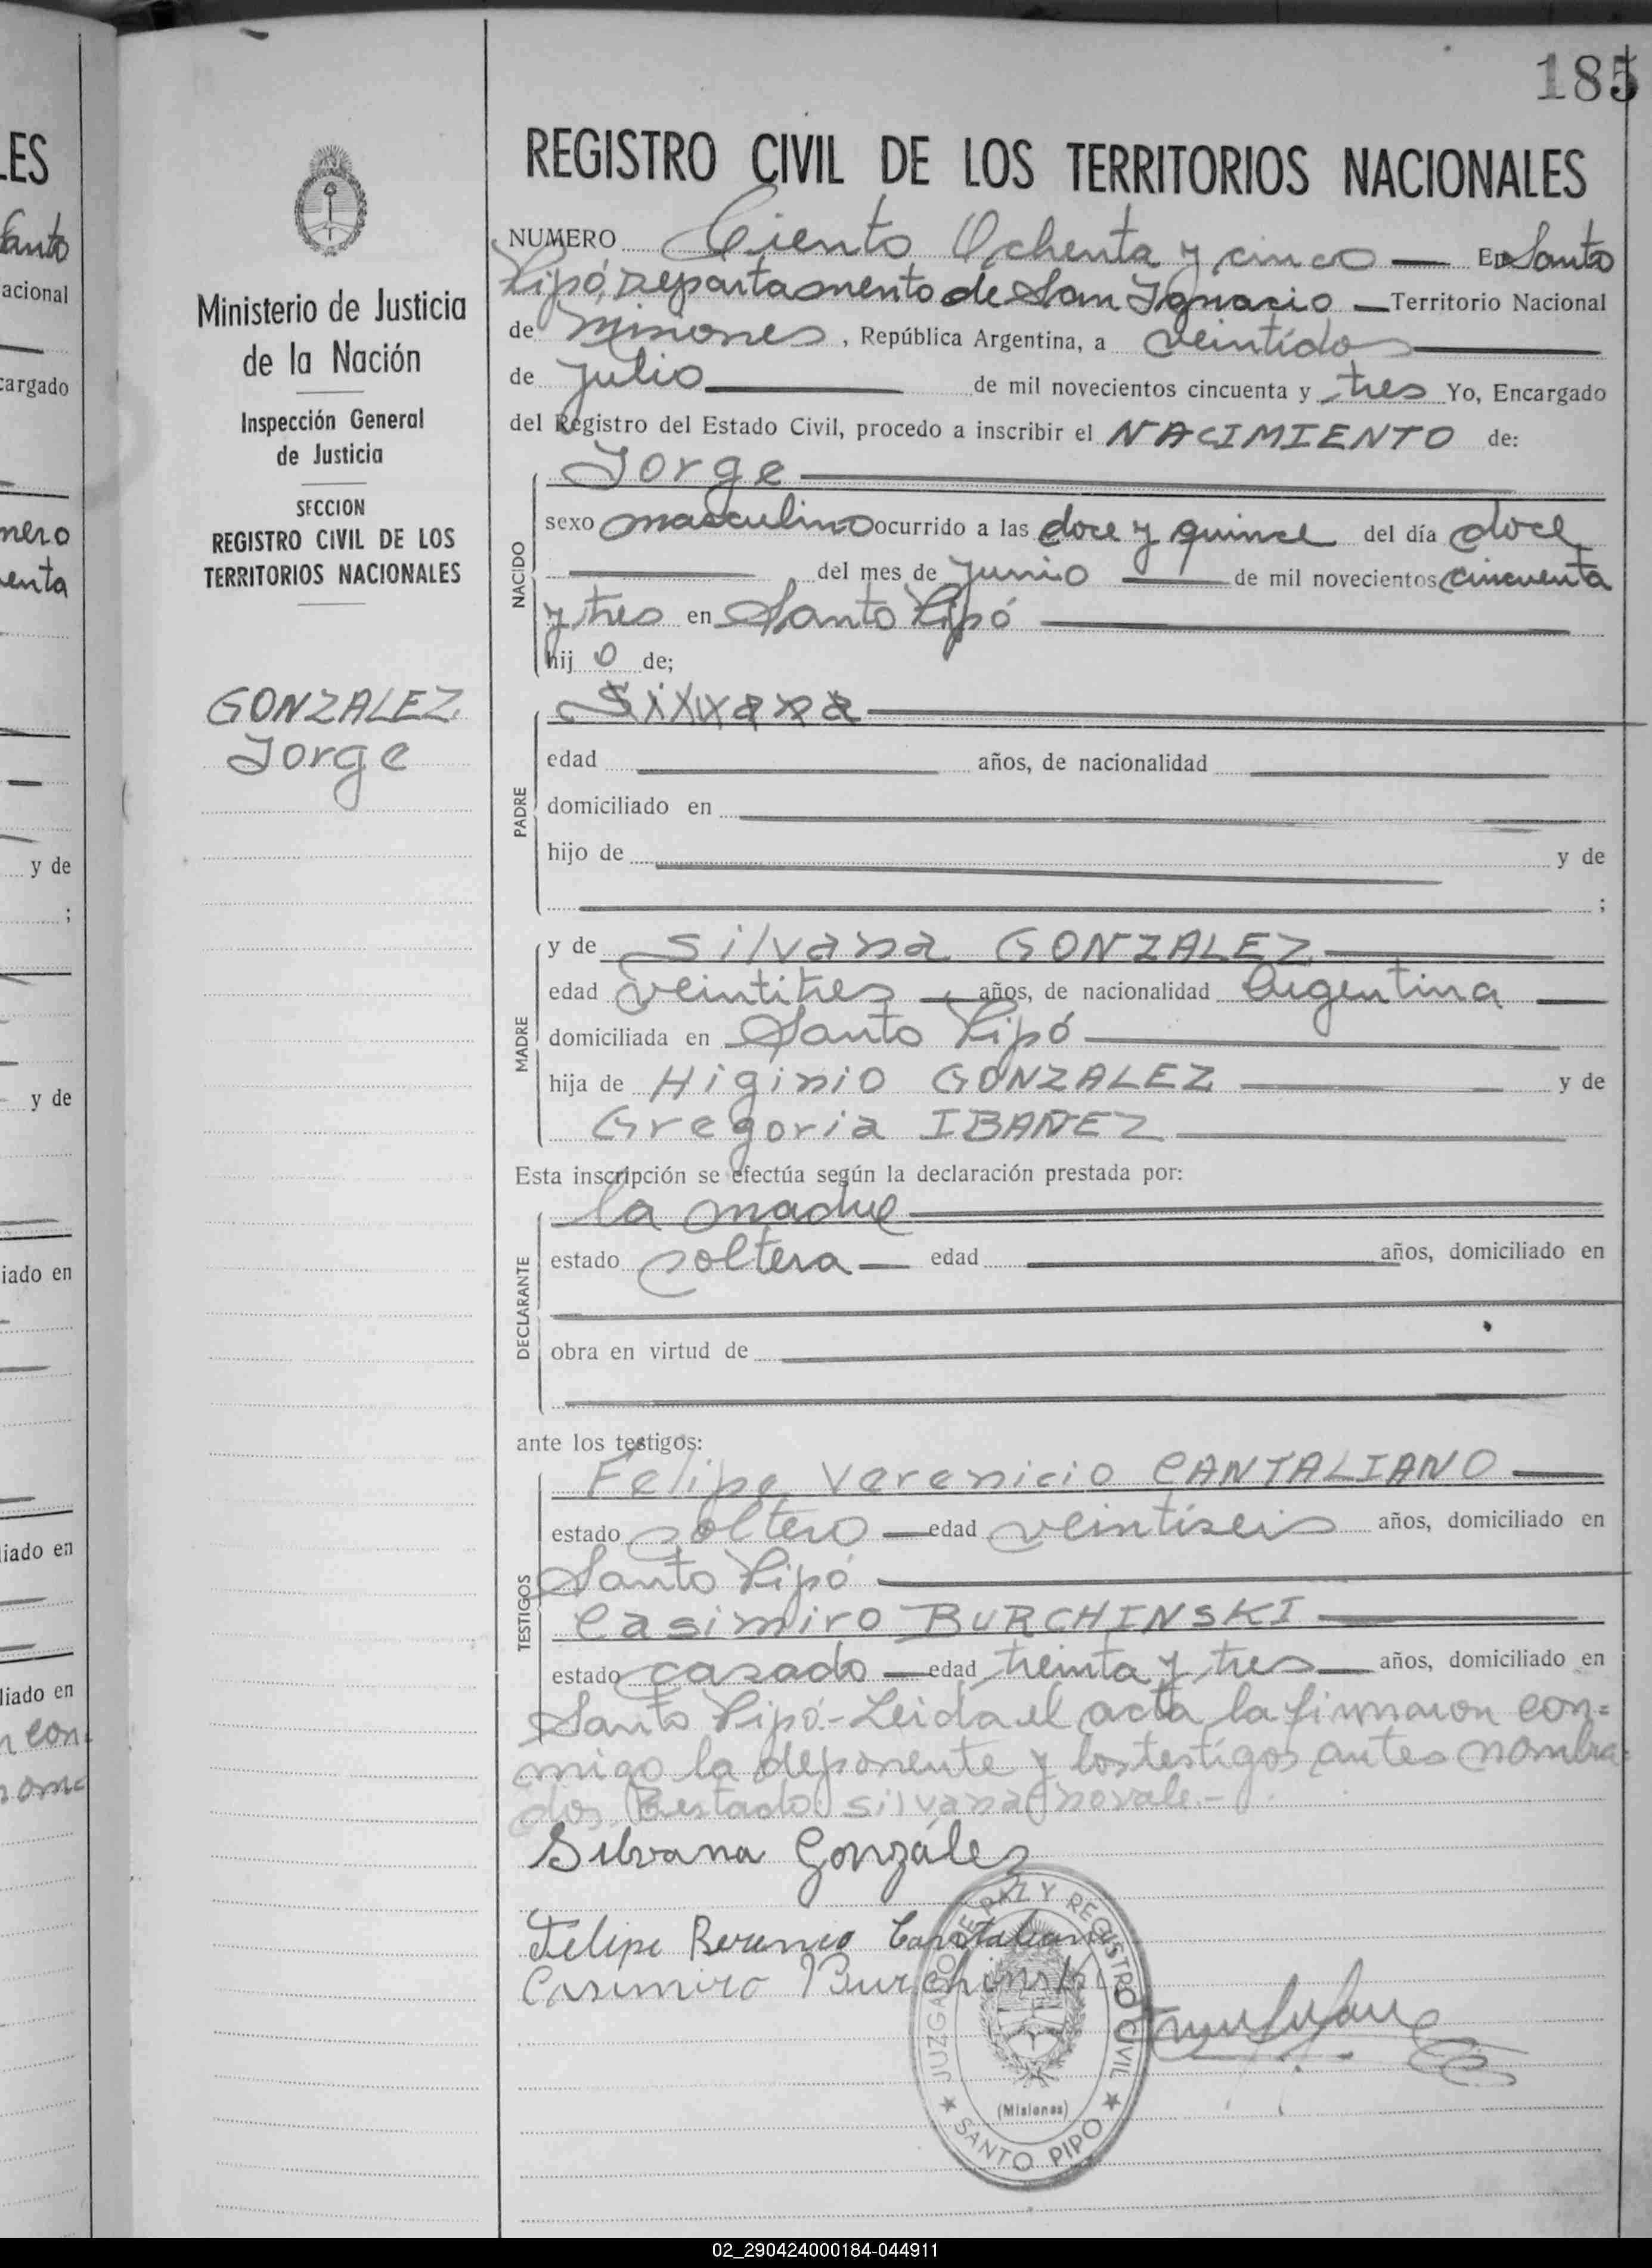 185
REGISTRO CIVIL DE LOS TERRITORIOS NACIONALES
NUMERO Ciento Ochenta y cinco — En Santo
Pipó, Departamento de San Ignacio — Territorio Nacional
de Misiones, República Argentina, a veintidos
de Julio de mil novecientos cincuenta y tres Yo, Encargado
del Registro del Estado Civil, procedo a inscribir el NACIMIENTO de:
NACIDO
Jorge
sexo masculino ocurrido a las doce y quince del día doce
del mes de Junio de mil novecientos cincuenta
y tres en Santo Pipó
hijo de;
PADRE
edad años, de nacionalidad
domiciliado en
hijo de y de
;
MADRE
y de Silvana GONZALEZ
edad veintitres años, de nacionalidad Argentina
domiciliada en Santo Pipó
hija de Higinio GONZALEZ y de
Gregoria IBAÑEZ
Esta inscripción se efectúa según la declaración prestada por:
DECLARANTE
la madre
estado soltera — edad años, domiciliado en
obra en virtud de
ante los testigos:
TESTIGOS
Felipe Verenicio CANTALIANO
estado soltero — edad veintiseis años, domiciliado en
Santo Pipó
Casimiro BURCHINSKI
estado casado — edad treinta y tres años, domiciliado en
Santo Pipó.- Leida el acta la firmaron con=
migo la deponente y los testigos antes nombra=
dos. Testado: silvana: no vale.-
Silvana González
Felipe Berenicio Cantaliano
Casimiro Burchinski
JUZGADO DE PAZ Y REGISTRO CIVIL
(Misiones)
★ SANTO PIPO ★
Ministerio de Justicia
de la Nación
Inspección General
de Justicia
SECCION
REGISTRO CIVIL DE LOS
TERRITORIOS NACIONALES
GONZALEZ
Jorge
LES
Santo
acional
cargado
mero
enta
y de
;
y de
iado en
iado en
liado en
con
02_290424000184-044911